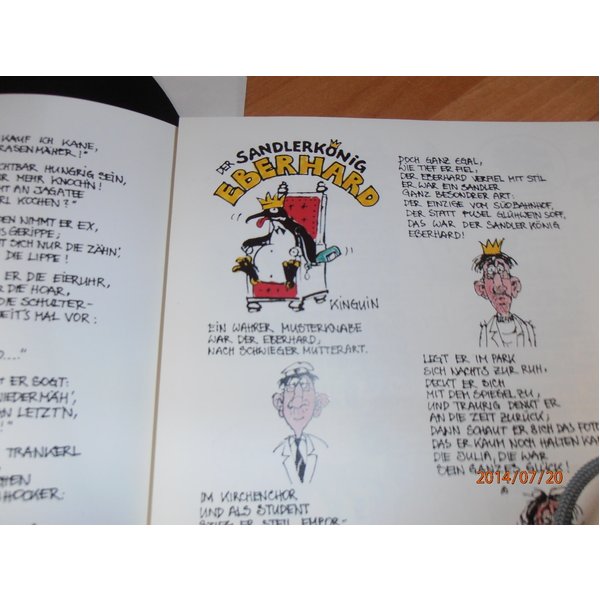 KAUF ICH KANE,
RASENMÄHER!"
HTBAR HUNGRIG SEIN,
R MEHR KNOCH'N!
HT AN JAGATEE
RL KOCHEN?"
DEN NIMMT ER EX,
S GERIPPE;
T SICH NUR DIE ZÄHN',
DIE LIPPE!
ER DIE EIERUHR,
R DIE HOAR,
DIE SCHULTER-
EIT'S MAL VOR:
O...."
T ER SOGT:
NIEDERMÄH',
N LETZT'N,
!"
TRANKERL
CHEN
HOCKER:
DER SANDLERKÖNIG
EBERHARD
KINGUIN
EIN WAHRER MUSTERKNABE
WAR DER EBERHARD,
NACH SCHWIEGERMUTTERART.
IM KIRCHENCHOR
UND ALS STUDENT
STIEG ER STEIL EMPOR-
DOCH GANZ EGAL,
WIE TIEF ER FIEL,
DER EBERHARD VERFIEL MIT STIL
ER WAR EIN SANDLER
GANZ BESOND'RER ART:
DER EINZIGE VOM SÜDBAHNHOF,
DER STATT FUSEL GLÜHWEIN SOFF,
DAS WAR DER SANDLERKÖNIG
EBERHARD!
LEGT ER IM PARK
SICH NACHTS ZUR RUH,
DECKT ER SICH
MIT DEM SPIEGEL ZU,
UND TRAURIG DENKT ER
AN DIE ZEIT ZURÜCK,
DANN SCHAUT ER SICH DAS FOTO
DAS ER KAUM NOCH HALTEN KA
DIE JULIA, DIE WAR
SEIN GANZES GLÜCK!
2014/07/20